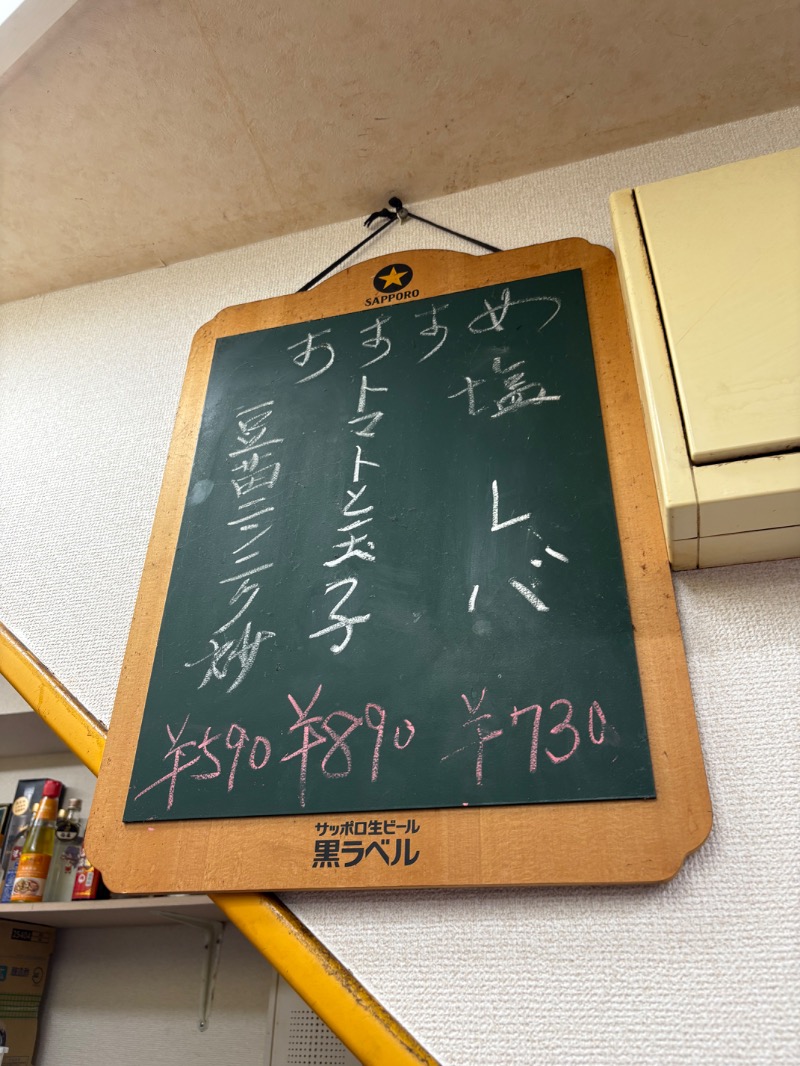 SAPPORO
おすすめ
塩 レバ
¥730
トマトと玉子
¥890
豆苗ニンニク炒
¥590
サッポロ生ビール
黒ラベル